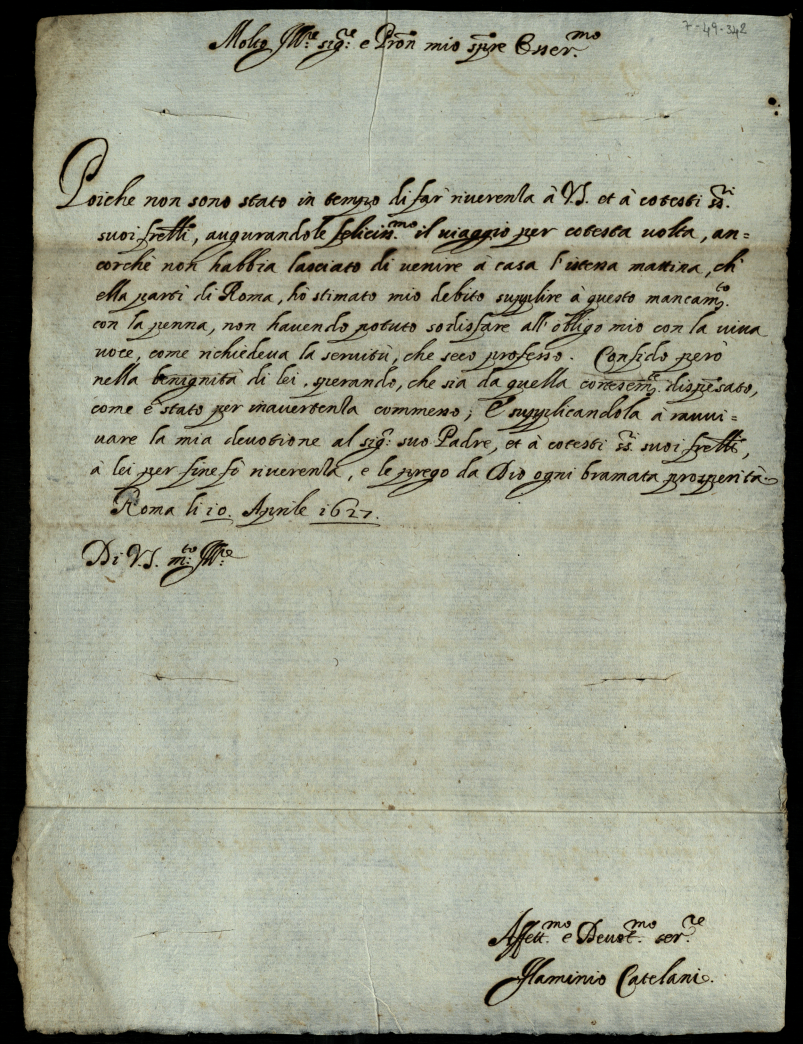 7-49-342
Molto Ill.re sig.re e Pron mio spre Osser.mo
Poiche non sono stato in tempo di far riverenza à V.S. et à cotesti ss.ri
suoi frelli, augurandole feliciss.mo il viaggio per cotesta volta, an=
corchè non habbia lasciato di venire à casa l'istessa mattina, ch'
ella partì di Roma, hò stimato mio debito supplire à questo mancam.to
con la penna, non havendo potuto sodisfare all'obligo mio con la viva
voce, come richiedeva la servitù, che seco professo. Confido però
nella benignità di lei, sperando, che sia da quella dispēsato,
come è stato per inavertenza commesso; E supplicandola à ravvi=
vare la mia devotione al sig.r suo Padre, et à cotesti ss.ri suoi frelli,
à lei per fine fò riverenza, e le prego da Dio ogni bramata prosperità.
Roma li 10. Aprile 1627.
Di V.S. m.to Ill.re
Affett.mo e Devot.mo ser.re
Flaminio Catelani.